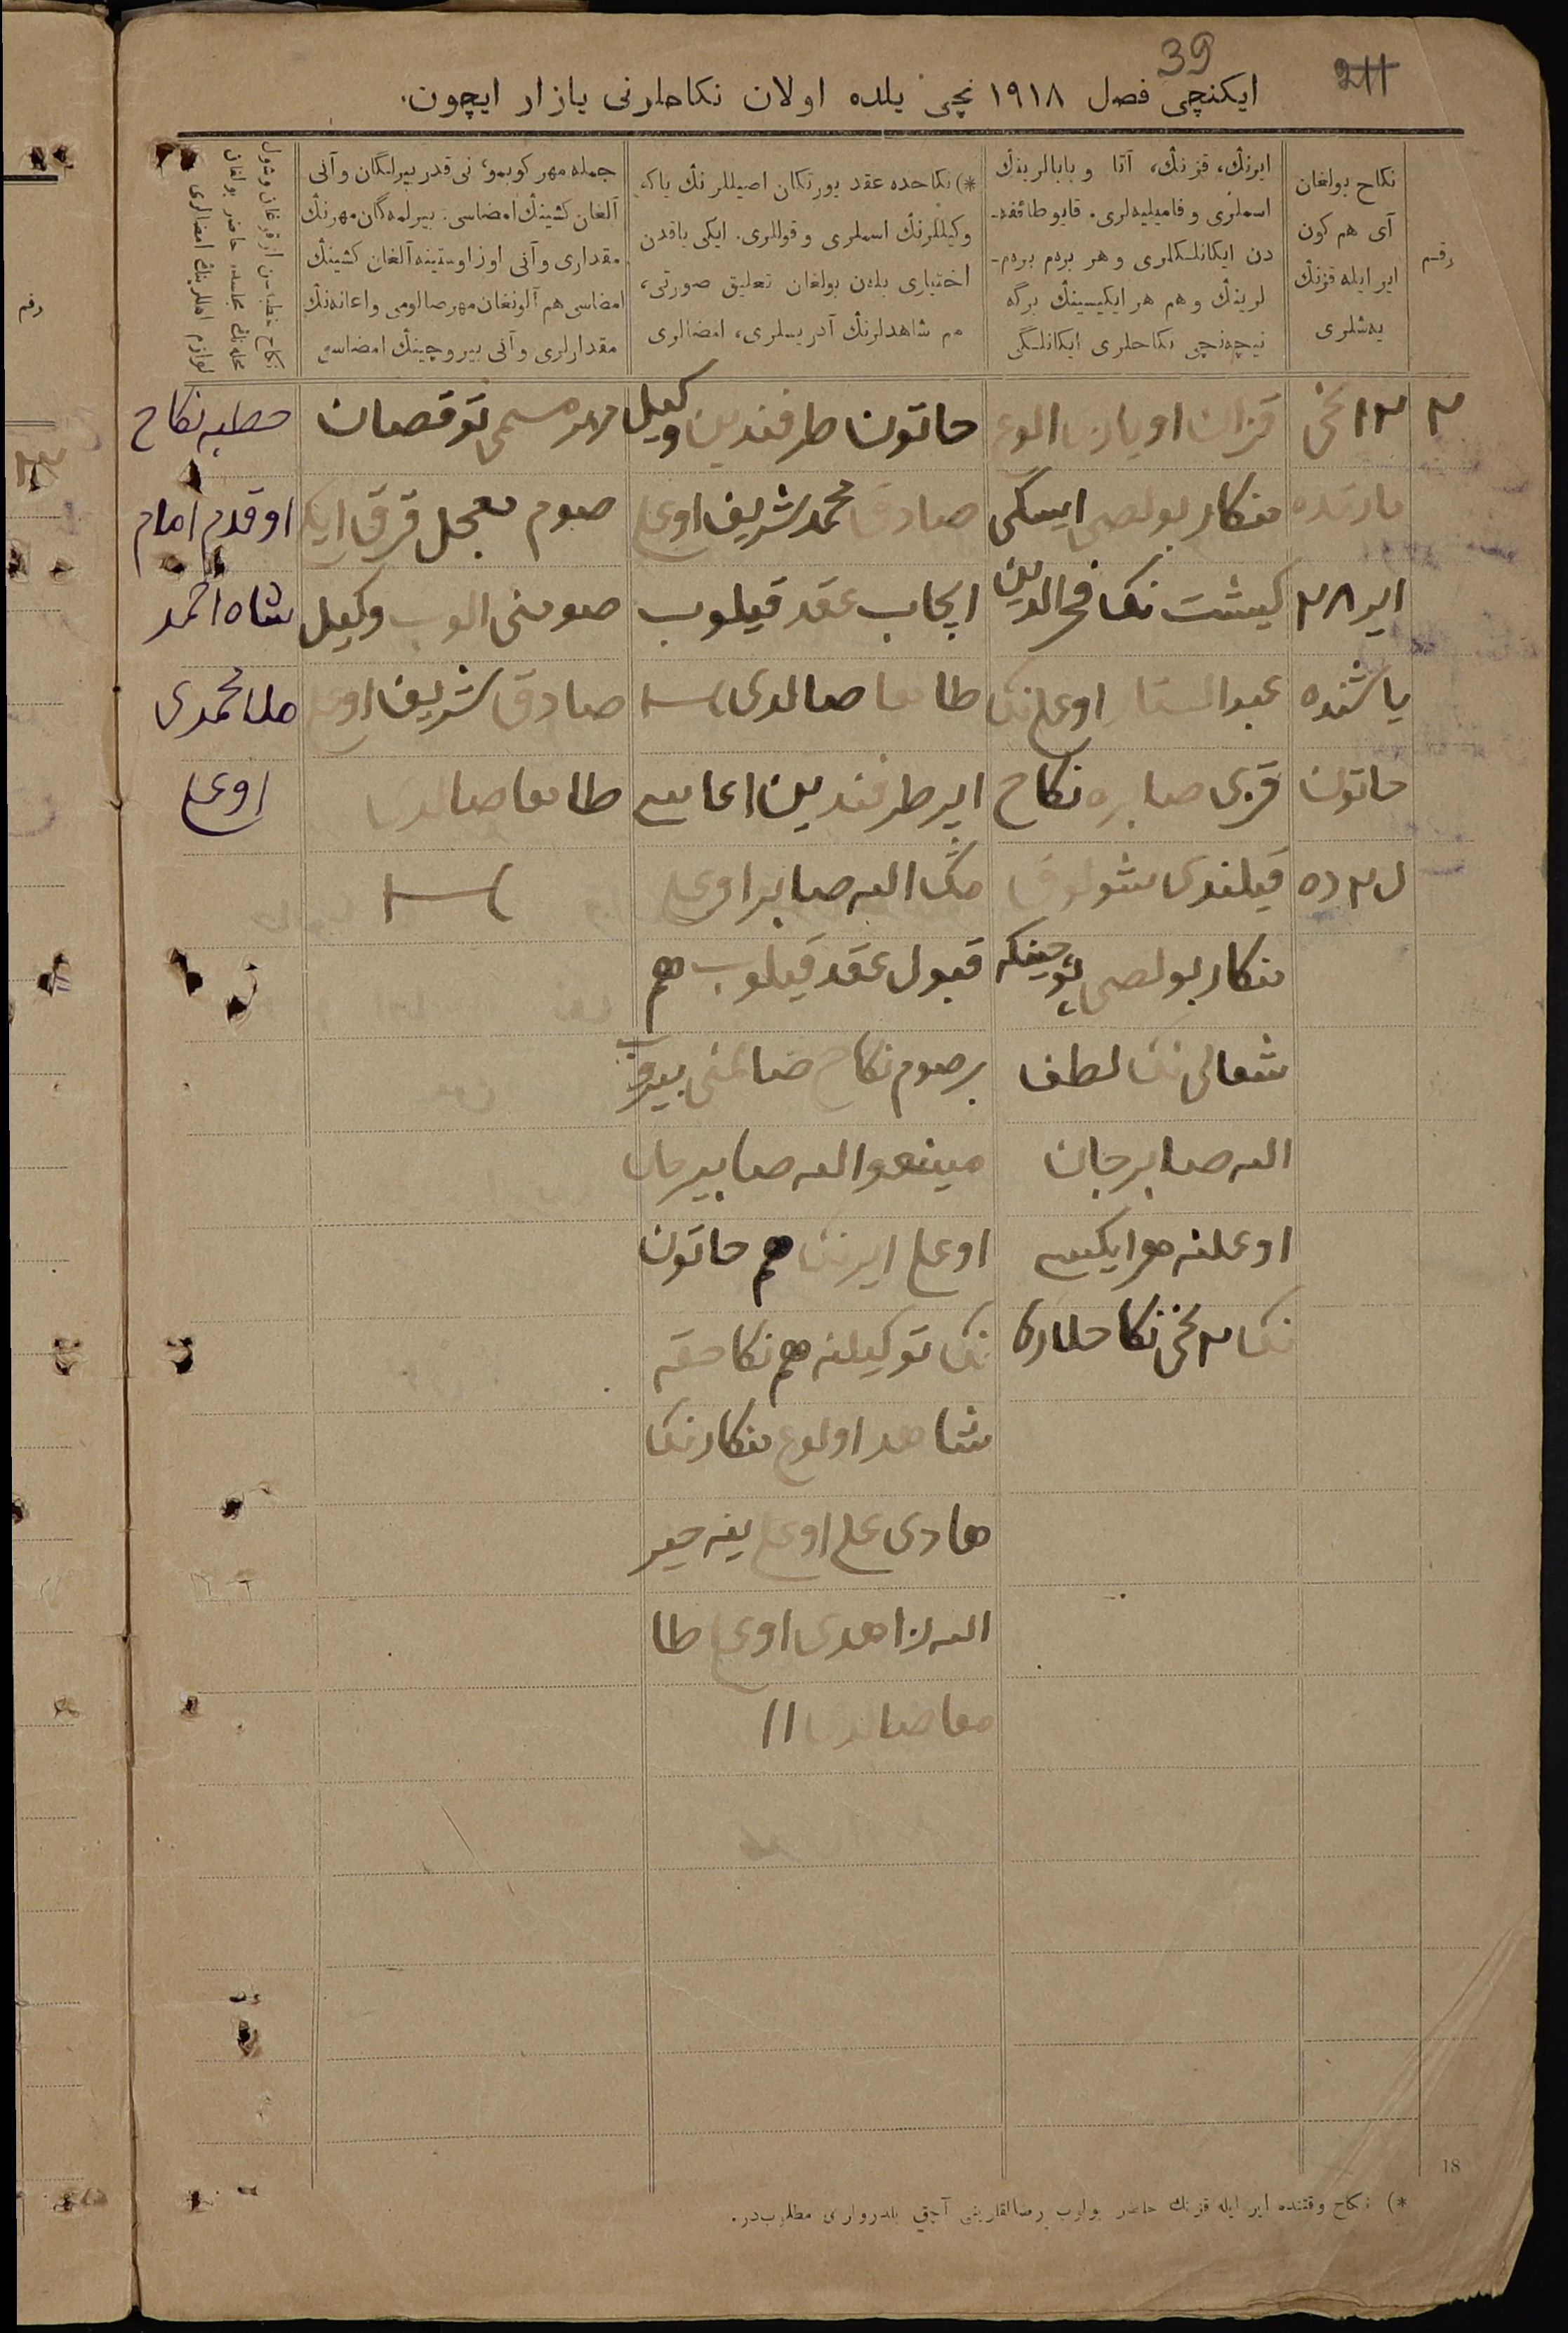 39
211
ایكنچی فصل ۱۹۱۸ نچی یلده اولان نكاحلرنی یازار ایچون.
رقم
نكاح بولغان
آی هم كون
ایر ایله قزنڭ
یەشلری
ایرنڭ، قزنڭ، آتا و بابالرینڭ
اسملری و فامیلیەلری. قایو طائفە-
دن ایكانلكلری و هر بردم بردم-
لرینڭ و هم هر ایكیسینڭ برگە
نیچەنچی نكاحلری ایكانلگی
*) نكاحده عقد یورتكان اصیللر نڭ یاكە
وكیللرنڭ اسملری و قوللری. ایكی یاقدن
اختیاری بلەن بولغان تعلیق صورتی،
هم شاهدلرنڭ آدریسلری، امضالری
جملە مهر كوبمو، نی قدر بیرلگان و آنی
آلغان كشینڭ امضاسی: بیرلمەگان مهرنڭ
مقداری و آنی اوز اوستینە آلغان كشینڭ
امضاسی هم آلونغان مهر صالومی و اعانەنڭ
مقدارلری و آنی بیروچینڭ امضاسی
۳
۱۳ نچی
مارتده
ایر ۲۸
یاشنده
خاتون
۲۰ ده
قزان اویازی الوغ
منكار بولصی ایسكی
كیشت نڭ فخرالدین
عبدالستار اوغلی نڭ
قزی صابره نكاح
قیلندی شولوق
منكار بولصی
شمالی نڭ لطف
الله صابرجان
اوغلنه هر ایكیسی
نڭ ۲ نچی نكاحلاری
خاتون طرفندین وكیل
صادق محمدشریف اوغلی
ایجاب عقد قیلوب
طامغا صالدی
ایر طرفندین اغاسی
الله صابر اوغلی
قبول عقد قیلوب هم
بر صوم نكاح بیروب
الله صابیرجان
اوغلی ایرنڭ هم خاتون
نڭ توكیلنه هم نكاحقه
شاهد اولوغ منكارنڭ
هادی علی اوغلی ینه خیر
الله زاهدی اوغلی طا
مغا صالدی //
مهر مسمی توقصان
صوم معجل قرق ایكی
صومنی الوب وكیل
صادق شریف اوغلی
طامغا صالدی
خطبه نكاح
اوقدم امام
شاه احمد
ملا محمدی
اوغلی
18
*) نكاح وقتنده ایر ایله قزنڭ حاضر بولوب رضالقلرینی آچق بلدرولری مطلوبدر.